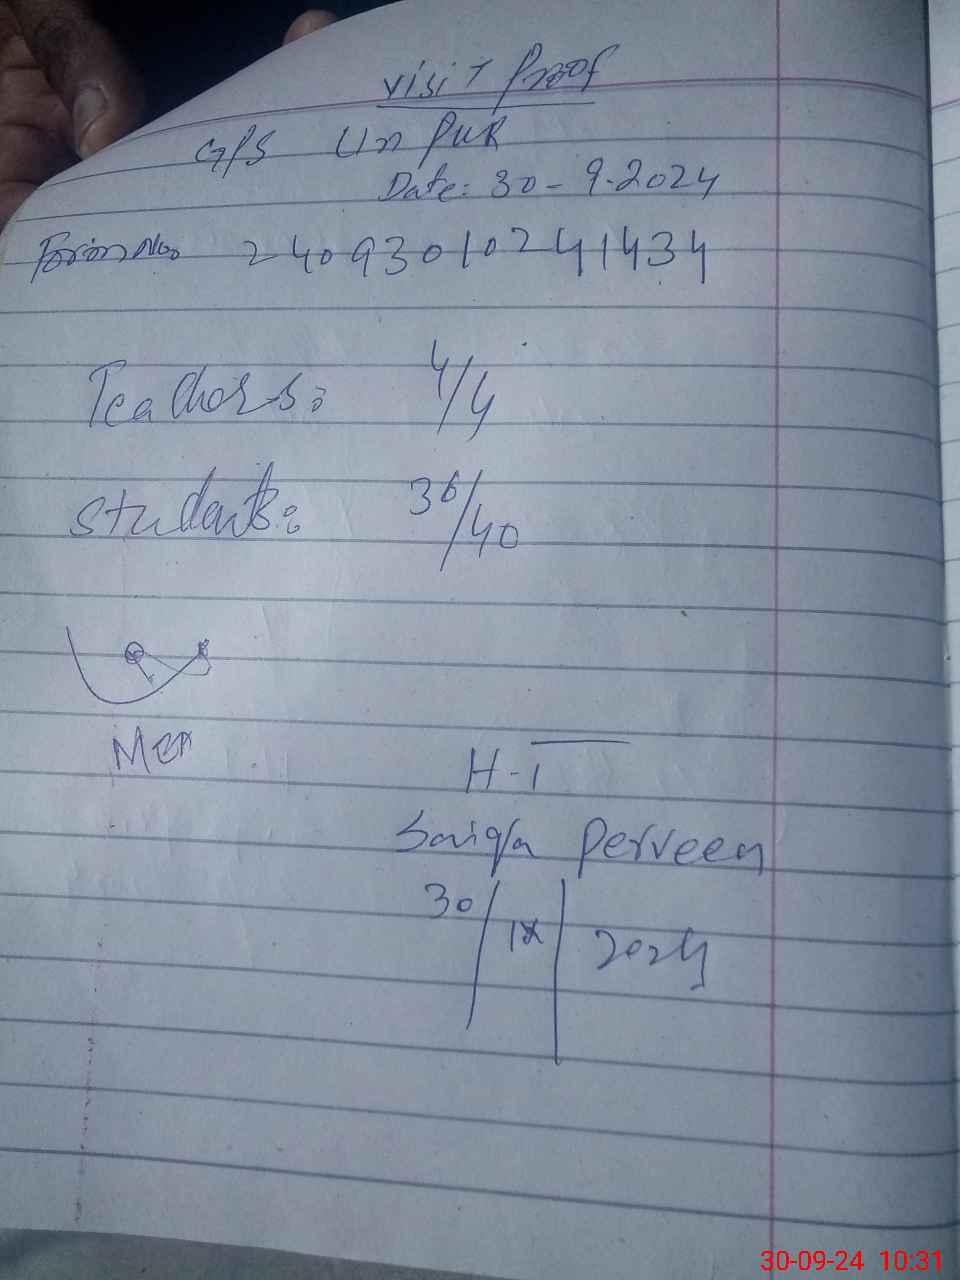 Visit Proof
GPS Un Pur
Date: 30-9-2024
Form No. 24093010241434
Teachers: 4/4
Students: 36/40
H-T
Saiqa Perveen
30/IX/2024
30-09-24 10:31